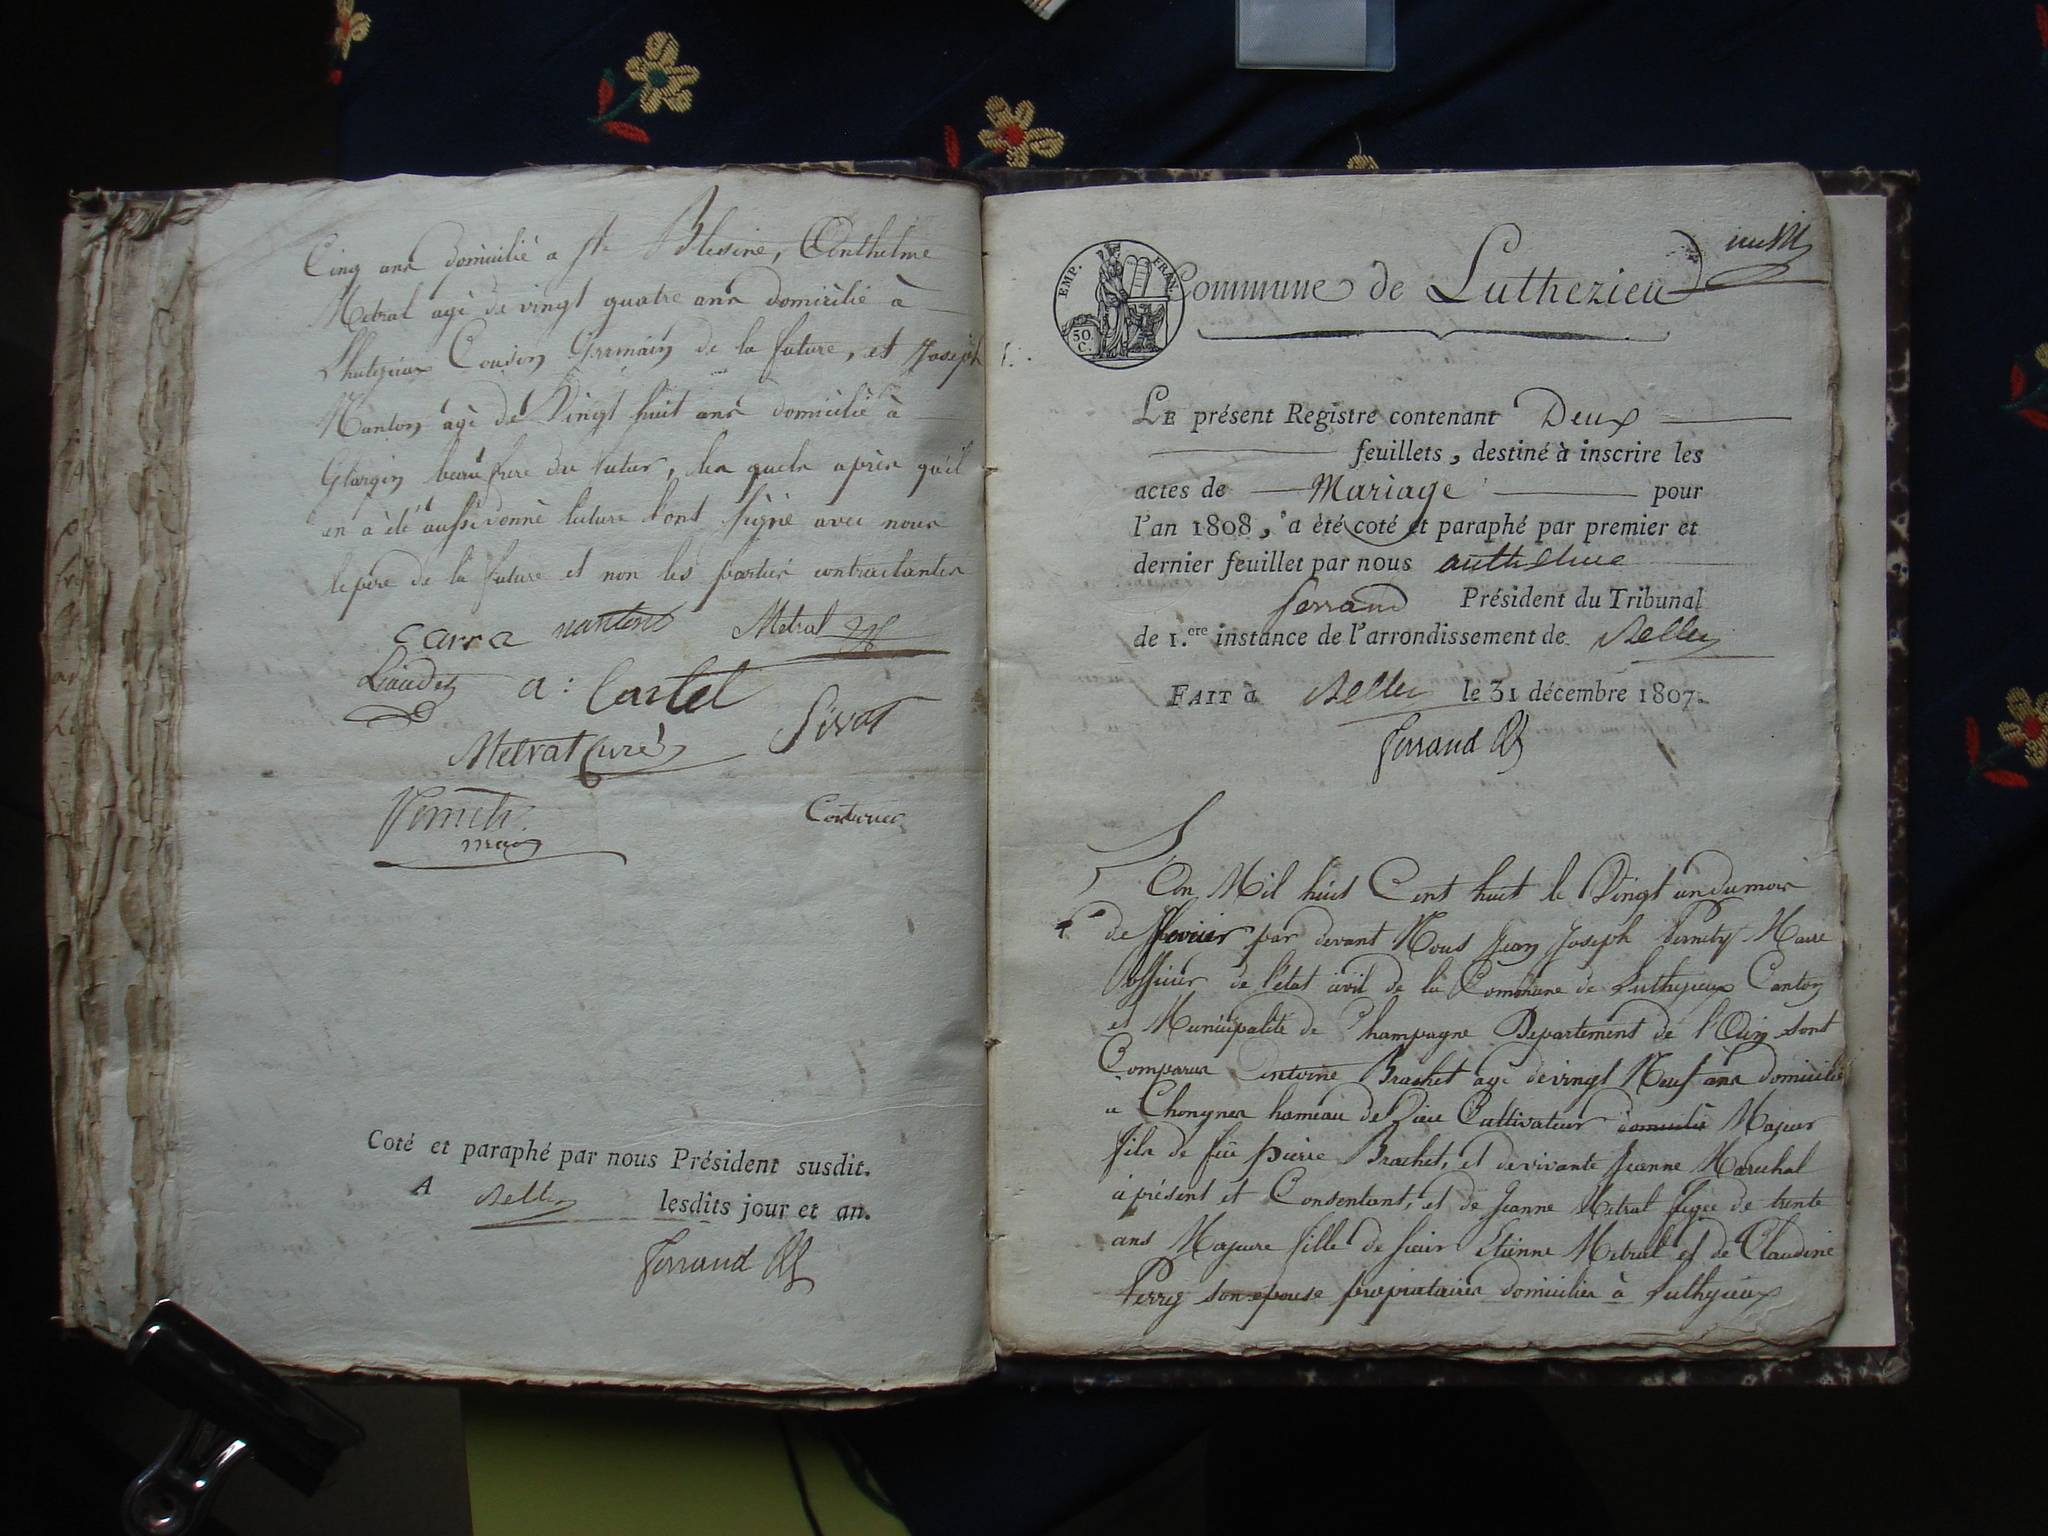 Cinq ans domicilié a Ste Blesine, Anthelme
Metral agé de vingt quatre ans domicilié à
Lhutezieux Cousin Germain de la future, et Joseph
Nanton agé de Vingt huit ans domicilié à
Glargin beau frere du futur, les quels après qu'il
en a été aussi donné lecture l'ont signé avec nous
le pere de la future et non les parties contractantes
Carra nanton Metral
Liaudet a: Castel
Metral Curé Sivot
Pernety
maire
Coté et paraphé par nous Président susdit.
A Belley lesdits jour et an.
Ferrand
EMP. FRAN.
50
C.
Commune de Luthezieu
LE présent Registre contenant Deux
feuillets, destiné à inscrire les
actes de Mariage pour
l'an 1808, a été coté et paraphé par premier et
dernier feuillet par nous anthelme
ferrand Président du Tribunal
de 1.ere instance de l'arrondissement de Belley
FAIT à Belley le 31 décembre 1807.
Ferrand
L'An Mil huit Cent huit le Vingt un du mois
de fevrier par devant Nous Jean Joseph Pernety Maire
officier de l'état civil de la Commune de Luthezieux Canton
et Municipalité de Champagne Departement de l'Ain sont
Comparus antoine Brachet agé de vingt Neuf ans domicilié
a Chongnes hameau de Cultivateur domicilié Majeur
fils de feu pierre Brachet, et de vivante Jeanne Marechal
à présent et Consentant, et de Jeanne Metral agée de trente
ans Majeure fille de sieur Etienne Metral et de Claudine
Perrey son epouse propriataires domiciliés à Luthezieux